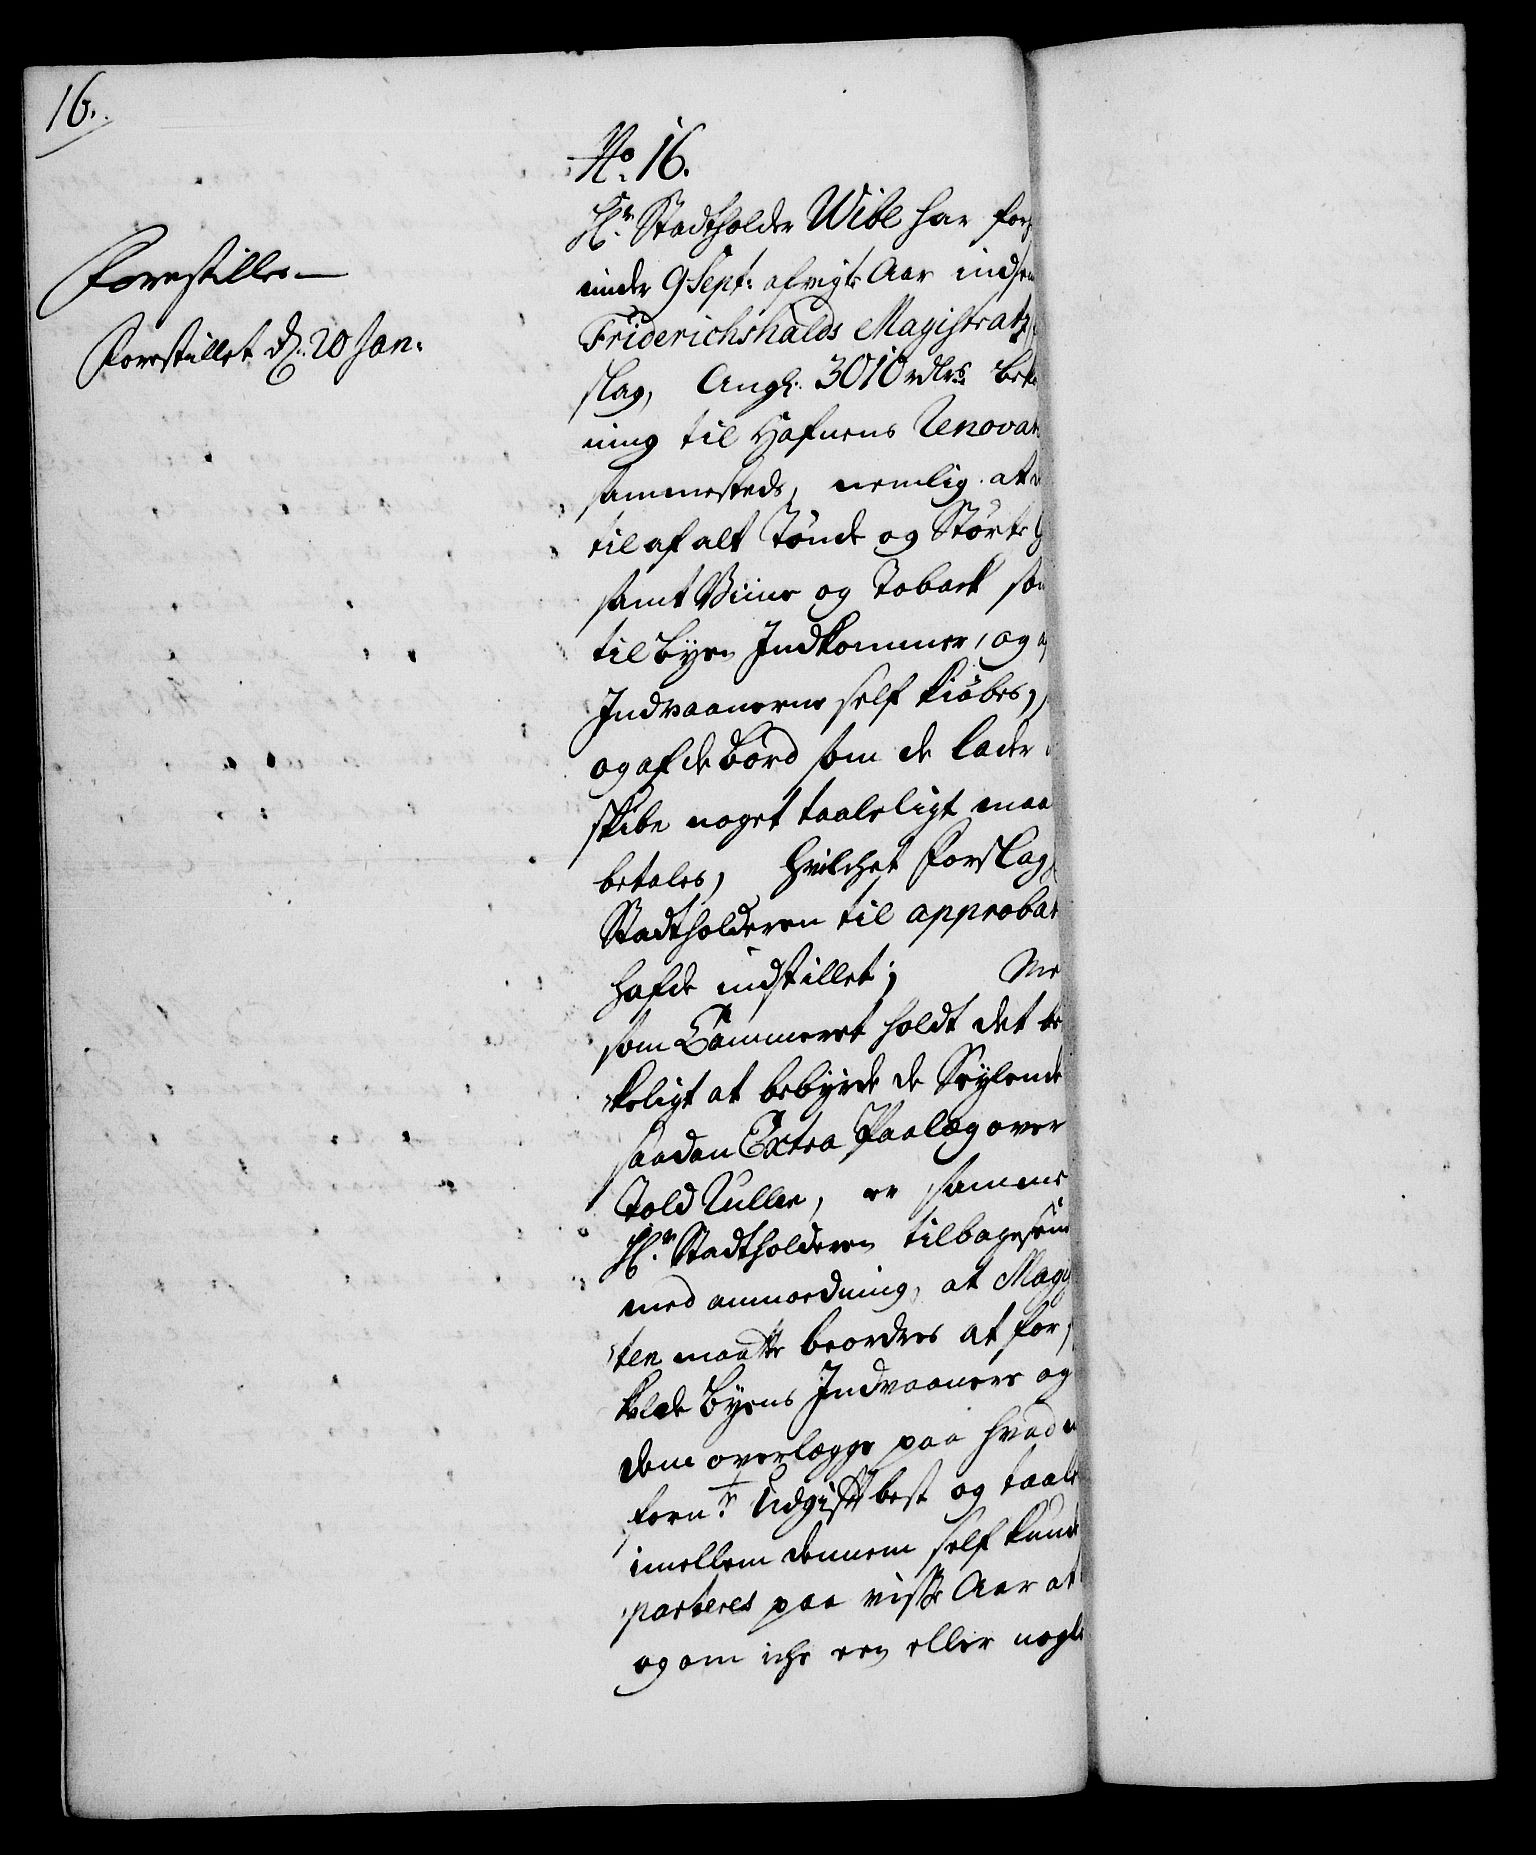 16.
No. 16.
Forestilles
Forestillet d. 20 Jan:
Hr. Stadtholder Wibe har
under 9 Sept: afvigte Aar indsen
Friderichshalds Magistrats
slag, Angl. 3010 rdlrs
ning til Hafnens Renovat
sammesteds, nemlig at
til af alt Tønde og Størte
samt Viine og Toback som
til Byen Indkommer, og
Indvaanerne self kiøbes,
og af de Bord som de lader
skibe noget taaleligt maa
betales, hvilchet Forslag
Stadtholderen til approbat
hafde indstillet; Me
som Cammeret holdt det be
keligt at bebyrde de Seylende
saadan Extra Paalæg over
Told Rullen, er samme
Hr. Stadtholderen tilbagesen
med anmoedning, at Magi
ten maatte beordres at for
kalde Byens Indvaanere og
dem overlegge paa hvad
forn. Udgift best og taale
imellem dennem self kunde
parteres paa visse Aar at
og om iche een eller nogle